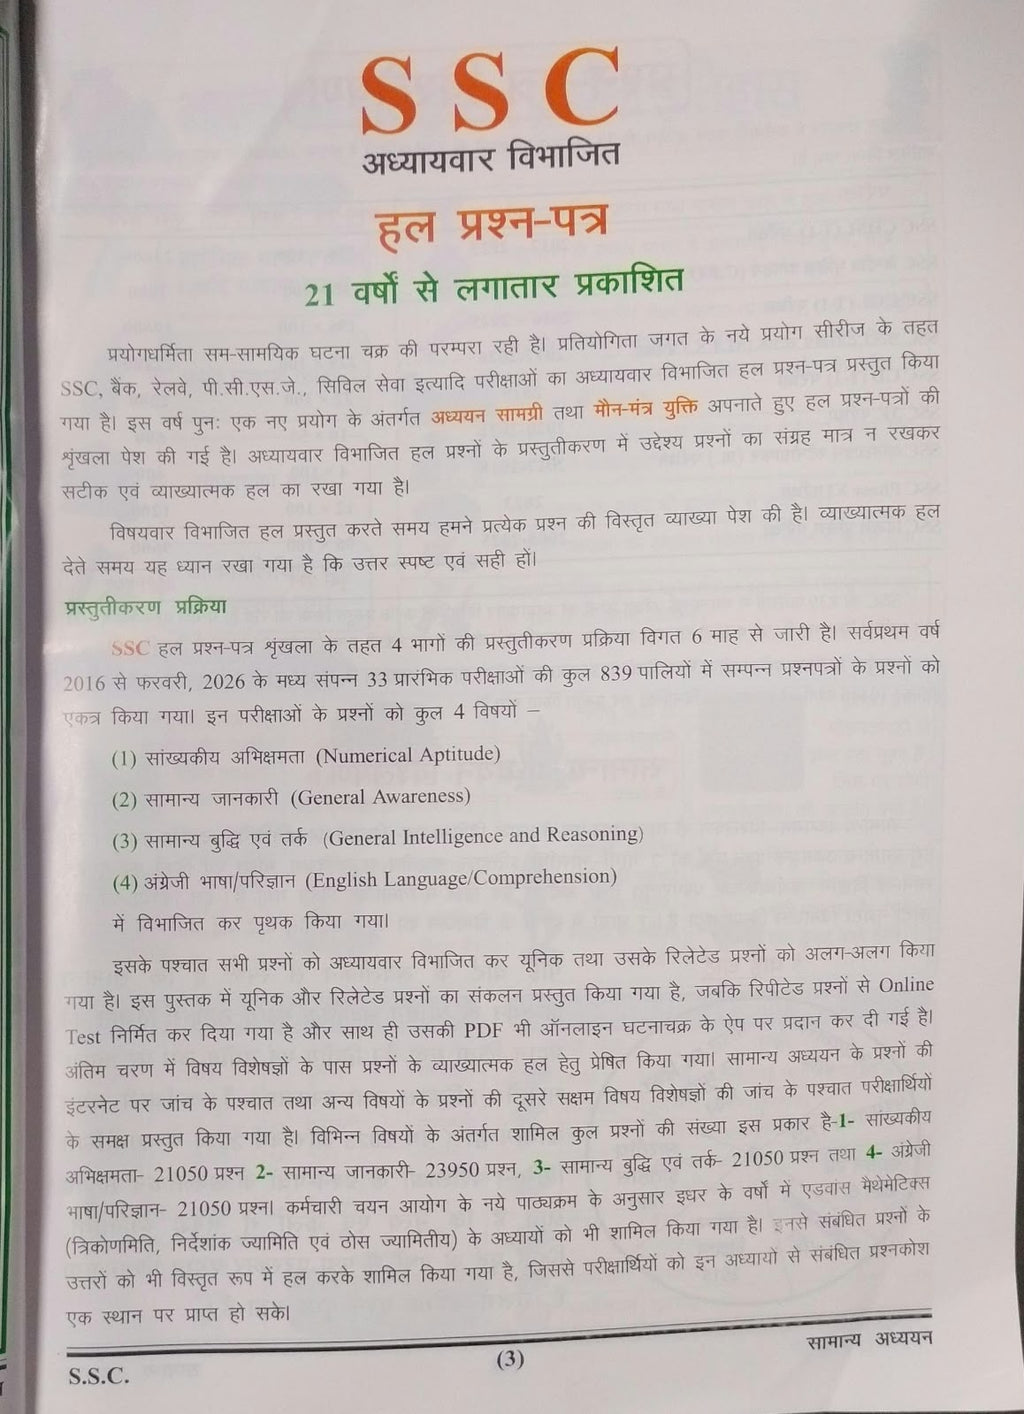 S S C
अध्यायवार विभाजित
हल प्रश्न-पत्र
21 वर्षों से लगातार प्रकाशित
प्रयोगधर्मिता सम-सामयिक घटना चक्र की परम्परा रही है। प्रतियोगिता जगत के नये प्रयोग सीरीज के तहत
SSC, बैंक, रेलवे, पी.सी.एस.जे., सिविल सेवा इत्यादि परीक्षाओं का अध्यायवार विभाजित हल प्रश्न-पत्र प्रस्तुत किया
गया है। इस वर्ष पुनः एक नए प्रयोग के अंतर्गत अध्ययन सामग्री तथा मौन-मंत्र युक्ति अपनाते हुए हल प्रश्न-पत्रों की
शृंखला पेश की गई है। अध्यायवार विभाजित हल प्रश्नों के प्रस्तुतीकरण में उद्देश्य प्रश्नों का संग्रह मात्र न रखकर
सटीक एवं व्याख्यात्मक हल का रखा गया है।
विषयवार विभाजित हल प्रस्तुत करते समय हमने प्रत्येक प्रश्न की विस्तृत व्याख्या पेश की है। व्याख्यात्मक हल
देते समय यह ध्यान रखा गया है कि उत्तर स्पष्ट एवं सही हों।
प्रस्तुतीकरण प्रक्रिया
SSC हल प्रश्न-पत्र शृंखला के तहत 4 भागों की प्रस्तुतीकरण प्रक्रिया विगत 6 माह से जारी है। सर्वप्रथम वर्ष
2016 से फरवरी, 2026 के मध्य संपन्न 33 प्रारंभिक परीक्षाओं की कुल 839 पालियों में सम्पन्न प्रश्नपत्रों के प्रश्नों को
एकत्र किया गया। इन परीक्षाओं के प्रश्नों को कुल 4 विषयों –
(1) सांख्यकीय अभिक्षमता (Numerical Aptitude)
(2) सामान्य जानकारी (General Awareness)
(3) सामान्य बुद्धि एवं तर्क (General Intelligence and Reasoning)
(4) अंग्रेजी भाषा/परिज्ञान (English Language/Comprehension)
में विभाजित कर पृथक किया गया।
इसके पश्चात सभी प्रश्नों को अध्यायवार विभाजित कर यूनिक तथा उसके रिलेटेड प्रश्नों को अलग-अलग किया
गया है। इस पुस्तक में यूनिक और रिलेटेड प्रश्नों का संकलन प्रस्तुत किया गया है, जबकि रिपीटेड प्रश्नों से Online
Test निर्मित कर दिया गया है और साथ ही उसकी PDF भी ऑनलाइन घटनाचक्र के ऐप पर प्रदान कर दी गई है।
अंतिम चरण में विषय विशेषज्ञों के पास प्रश्नों के व्याख्यात्मक हल हेतु प्रेषित किया गया। सामान्य अध्ययन के प्रश्नों की
इंटरनेट पर जांच के पश्चात तथा अन्य विषयों के प्रश्नों की दूसरे सक्षम विषय विशेषज्ञों की जांच के पश्चात परीक्षार्थियों
के समक्ष प्रस्तुत किया गया है। विभिन्न विषयों के अंतर्गत शामिल कुल प्रश्नों की संख्या इस प्रकार है-1- सांख्यकीय
अभिक्षमता- 21050 प्रश्न 2- सामान्य जानकारी- 23950 प्रश्न, 3- सामान्य बुद्धि एवं तर्क- 21050 प्रश्न तथा 4- अंग्रेजी
भाषा/परिज्ञान- 21050 प्रश्न। कर्मचारी चयन आयोग के नये पाठ्यक्रम के अनुसार इधर के वर्षों में एडवांस मैथेमेटिक्स
(त्रिकोणमिति, निर्देशांक ज्यामिति एवं ठोस ज्यामितीय) के अध्यायों को भी शामिल किया गया है। इनसे संबंधित प्रश्नों के
उत्तरों को भी विस्तृत रूप में हल करके शामिल किया गया है, जिससे परीक्षार्थियों को इन अध्यायों से संबंधित प्रश्नकोश
एक स्थान पर प्राप्त हो सके।
S.S.C. (3) सामान्य अध्ययन